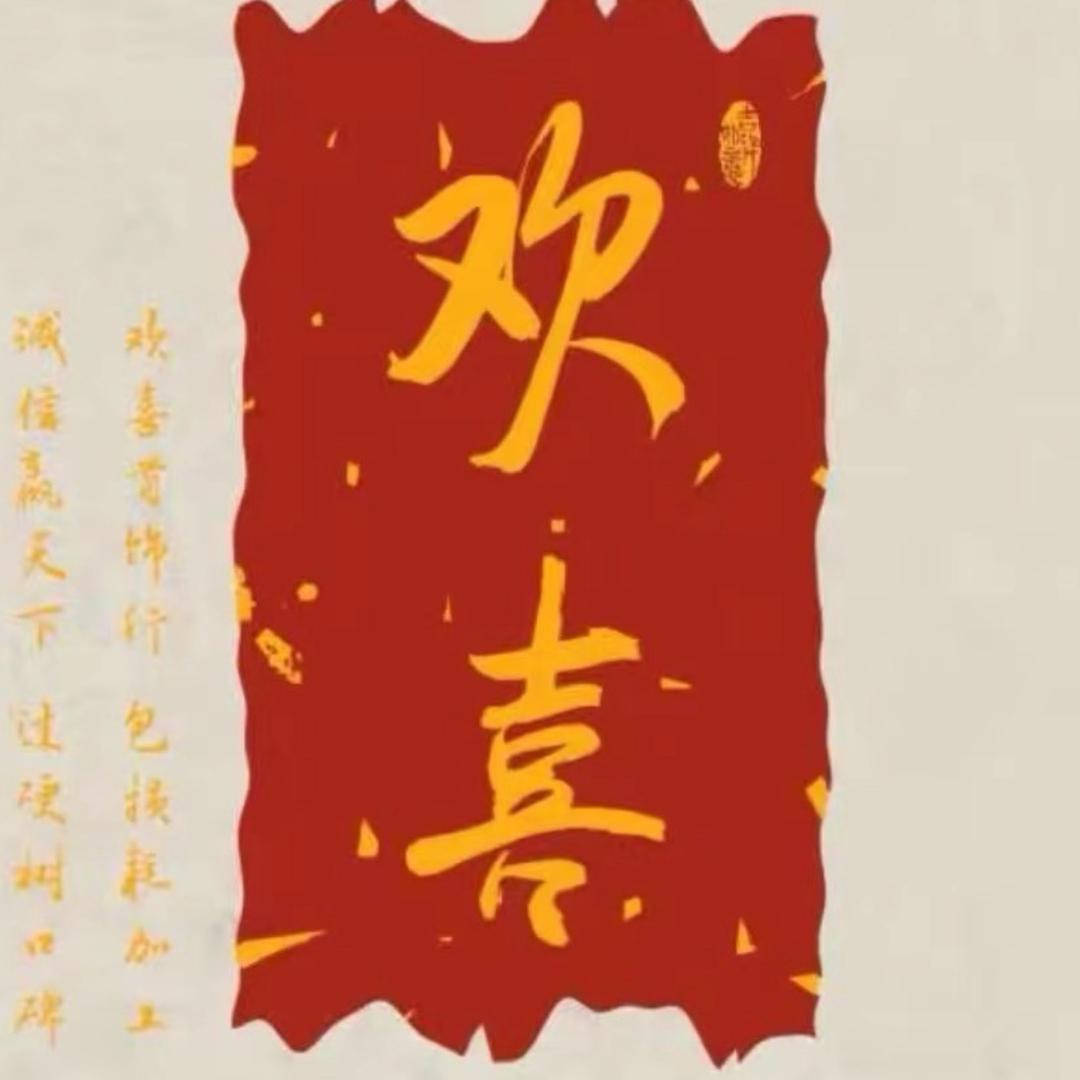 欢喜
欢喜首饰行 包损耗加工
诚信赢天下 过硬树口碑